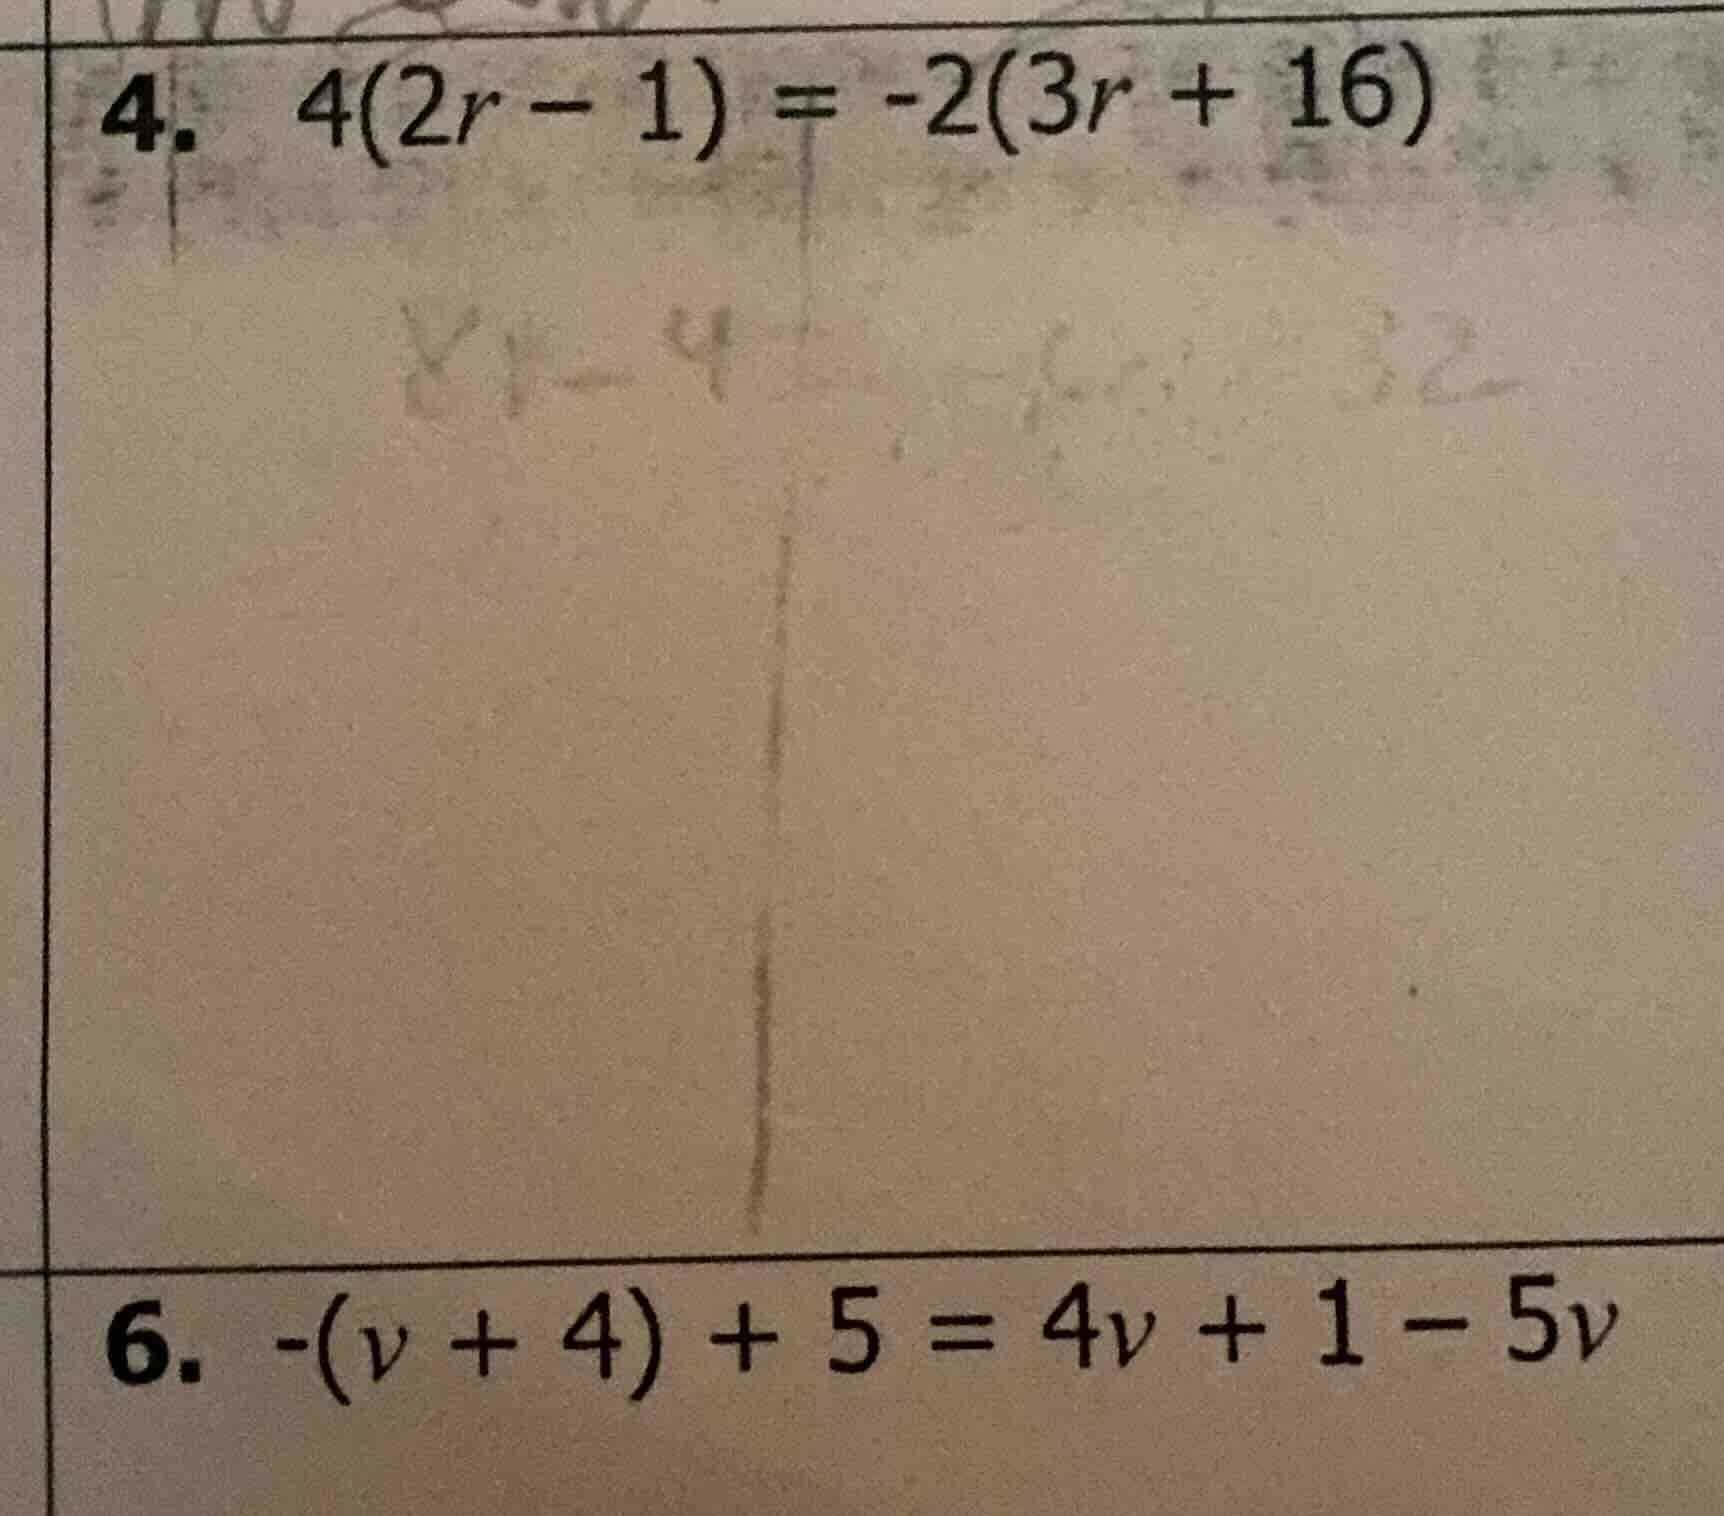 4. 4(2r – 1) = -2(3r + 16)
8r – 4 = -6r - 32
6. -(v + 4) + 5 = 4v + 1 – 5v